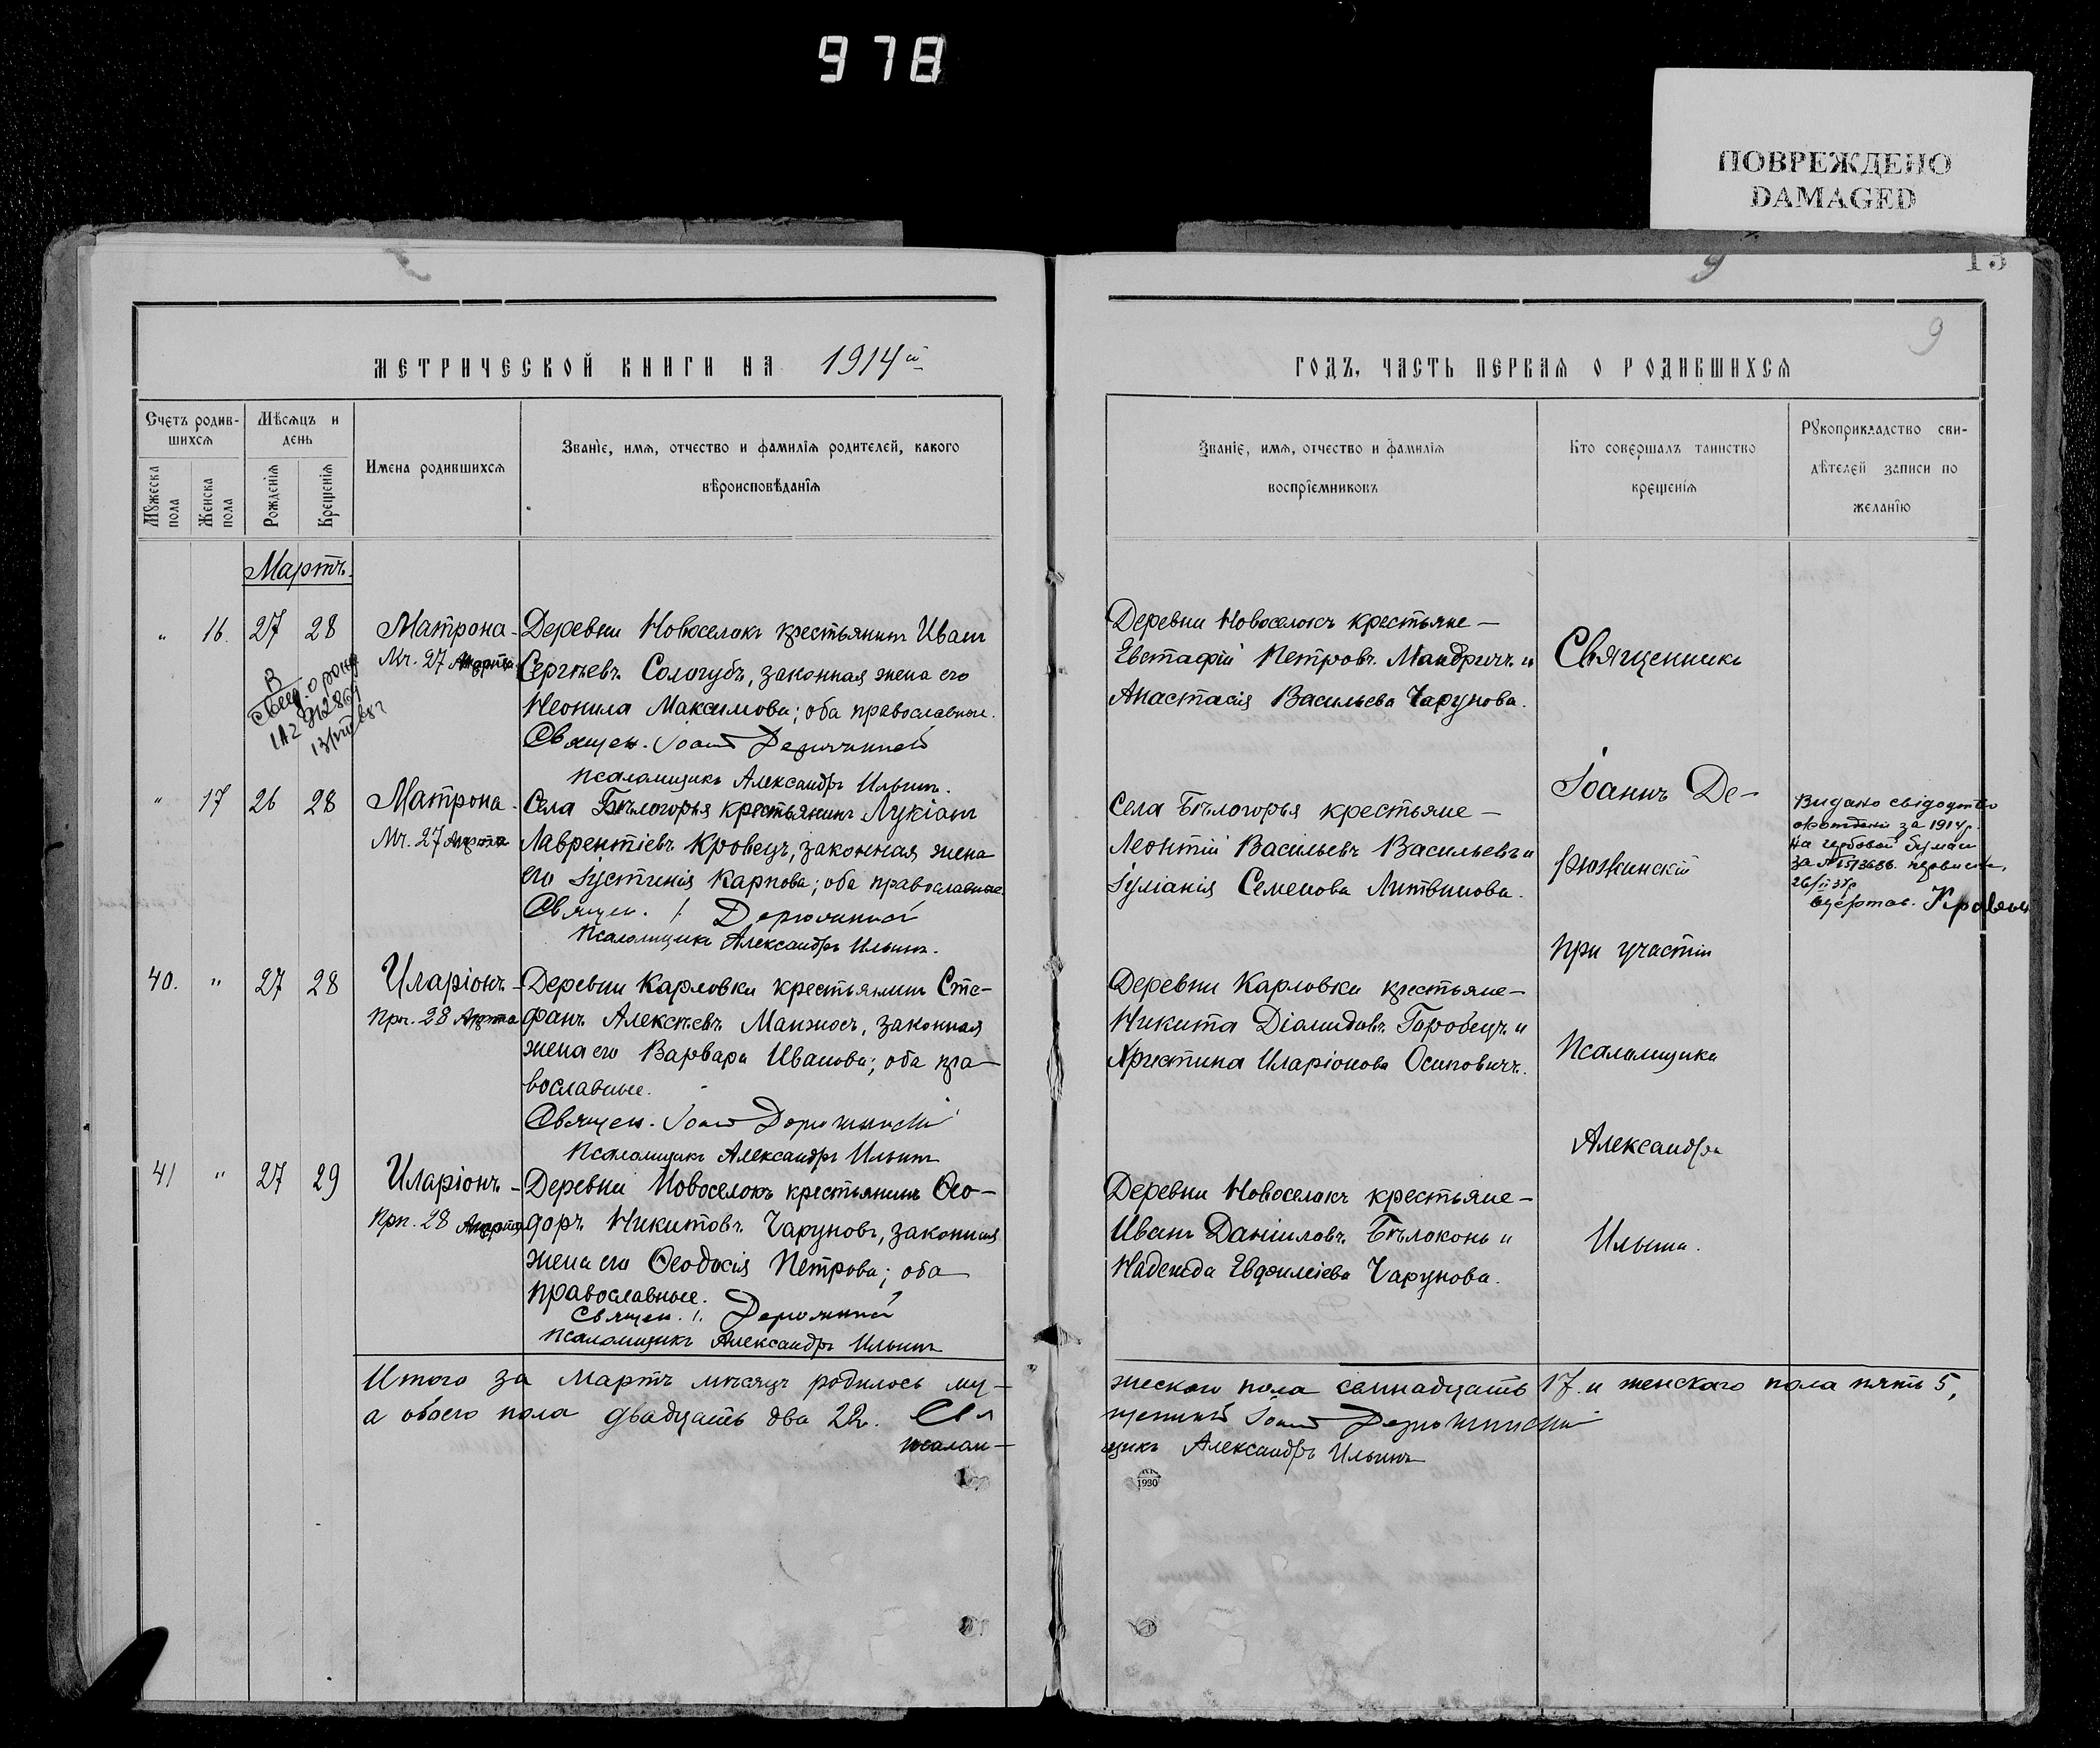 978
ПОВРЕЖДЕНО
DAMAGED
9
13
9
МЕТРИЧЕСКОЙ КНИГИ НА 1914й
ГОДЪ, ЧАСТЬ ПЕРВАЯ О РОДИВШИХСЯ
Счетъ родив-
шихся
Мужеска
пола
Женска
пола
Мѣсяцъ и
день
Рожденія
Крещенія
Имена родившихся
Званіе, имя, отчество и фамилія родителей, какого
вѣроисповѣданія
Званіе, имя, отчество и фамилія
воспріемниковъ
Кто совершалъ таинство
крещенія
Рукоприкладство сви-
дѣтелей записи по
желанію
Мартъ.
" 16. 27 28
Матрона
Мч. 27 Марта
Деревни Новоселокъ крестьянинъ Иванъ
Сергѣевъ Сологубъ, законная жена его
Неонила Максимова; оба православные.
Священ. Іоаннъ Дерюжинскій
Псаломщикъ Александръ Ильинъ.
Деревни Новоселокъ крестьяне —
Евстафій Петровъ Мандричъ и
Анастасія Васильева Чарунова.
" 17 26 28
Матрона
Мч. 27 Марта
Села Бѣлогорья крестьянинъ Лукіанъ
Лаврентіевъ Кровецъ, законная жена
его Іустинія Карпова; оба православные.
Священ. І. Дерюжинскій
Псаломщикъ Александръ Ильинъ.
Села Бѣлогорья крестьяне —
Леонтій Васильевъ Васильевъ и
Іуліанія Семенова Литвинова.
Видано свідоцтво
за 1914 р.
на гербовой бумаги
26/II 37р
40. " 27 28
Иларіонъ
Прп. 28 Марта
Деревни Карловки крестьянинъ Сте-
фанъ Алексѣевъ Манжосъ, законная
жена его Варвара Иванова; оба пра-
вославные.
Священ. Іоаннъ Дерюжинскій
Псаломщикъ Александръ Ильинъ
Деревни Карловки крестьяне —
Никита Діамидовъ Горобецъ и
Христина Иларіонова Осиповичъ.
41 " 27 29
Иларіонъ
Прп. 28 Марта
Деревни Новоселокъ крестьянинъ Ѳео-
доръ Никитовъ Чаруновъ, законная
жена его Ѳеодосія Петрова; оба
православные.
Священ. І. Дерюжинскій
Псаломщикъ Александръ Ильинъ
Деревни Новоселокъ крестьяне —
Иванъ Даніиловъ Бѣлоконь и
Надежда Евфиміева Чарунова.
Священникъ
Іоаннъ Де-
рюжинскій
при участіи
Псаломщика
Александра
Ильина.
Итого за Мартъ мѣсяцъ родилось му-
жескаго пола семнадцать 17. и женскаго пола пять 5,
а обоего пола двадцать два 22. Свя
щенникъ Іоаннъ Дерюжинскій
псалом-
щикъ Александръ Ильинъ
1930